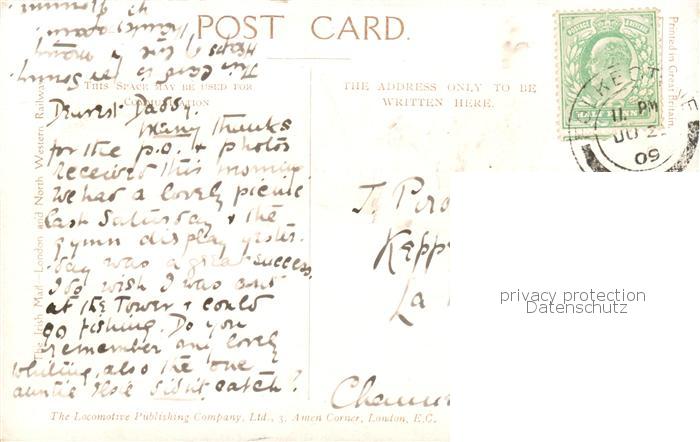 POST CARD.
This Space may be used for
Communication
THE ADDRESS ONLY TO BE
WRITTEN HERE.
Printed in Great Britain
POSTAGE & REVENUE
HALF PENNY
FOLKESTONE
11 PM
JU 2
09
This card is for Sunny,
Dearest Daddy.
Many thanks
for the p.o. & photos
received this morning.
We had a lovely picnic
last Saturday & the
gymn display yester-
day was a great success.
I do wish I was
at the Tower & could
go fishing. Do you
remember our lovely
whiting, also the one
auntie Elsie didn't catch?
To
Kepp
La
The Irish Mail—London and North Western Railway
The Locomotive Publishing Company, Ltd., 3, Amen Corner, London, E.C.
privacy protection
Datenschutz